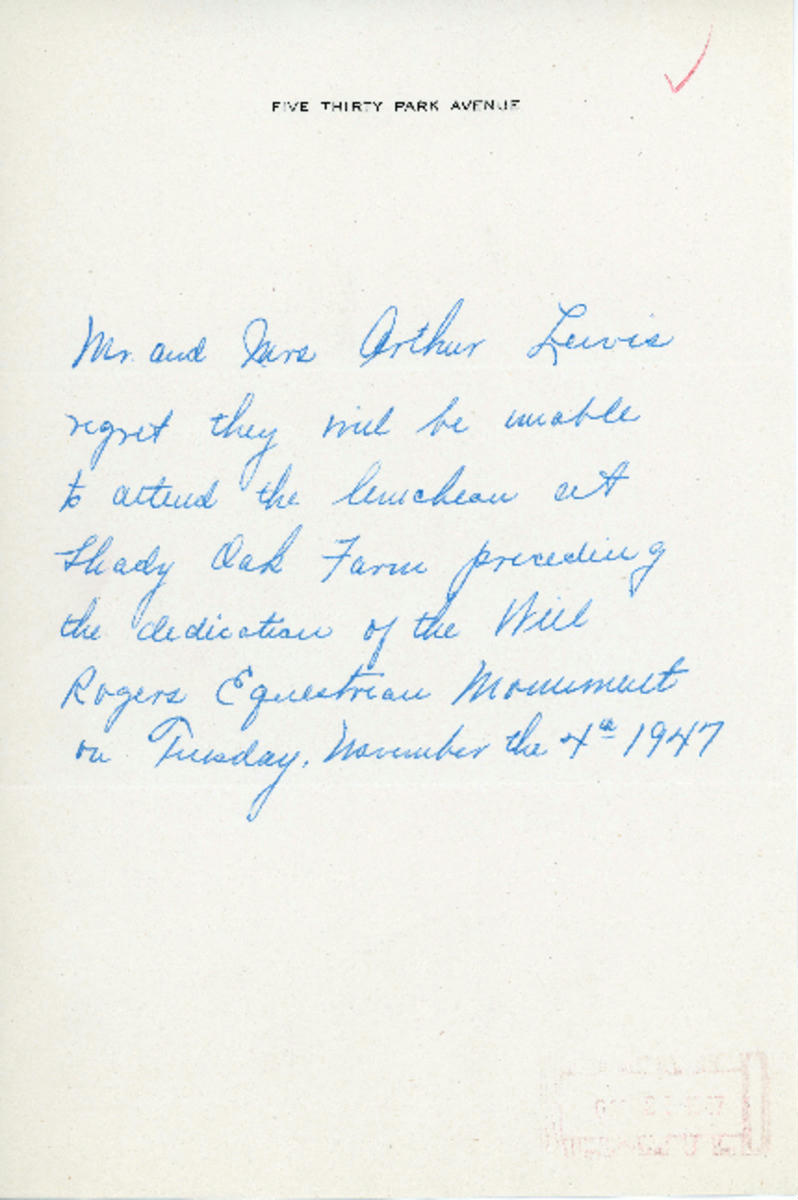 FIVE THIRTY PARK AVENUE
Mr. and Mrs Arthur Lewis
regret they will be unable
to attend the luncheon at
Shady Oak Farm preceding
the dedication of the Will
Rogers Equestrian Monument
on Tuesday, November the 4th 1947